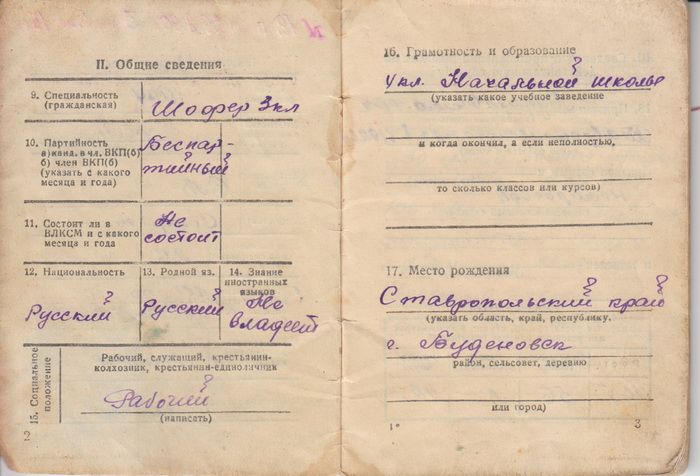 II. Общие сведения
9. Специальность
(гражданская)
Шофер 3 кл
10. Партийность
а) канд. в чл. ВКП(б)
б) член ВКП(б)
(указать с какого
месяца и года)
Беспар-
тийный
11. Состоит ли в
ВЛКСМ и с какого
месяца и года
Не
состоит
12. Национальность
Русский
13. Родной яз.
Русский
14. Знание
иностранных
языков
Не
владеет
15. Социальное
положение
Рабочий, служащий, крестьянин-
колхозник, крестьянин-единоличник
Рабочий
(написать)
2
16. Грамотность и образование
4 кл. Начальной школы
(указать какое учебное заведение
и когда окончил, а если неполностью,
то сколько классов или курсов)
17. Место рождения
Ставропольский край
(указать область, край, республику,
г. Буденовск
район, сельсовет, деревню
или город)
1*
3